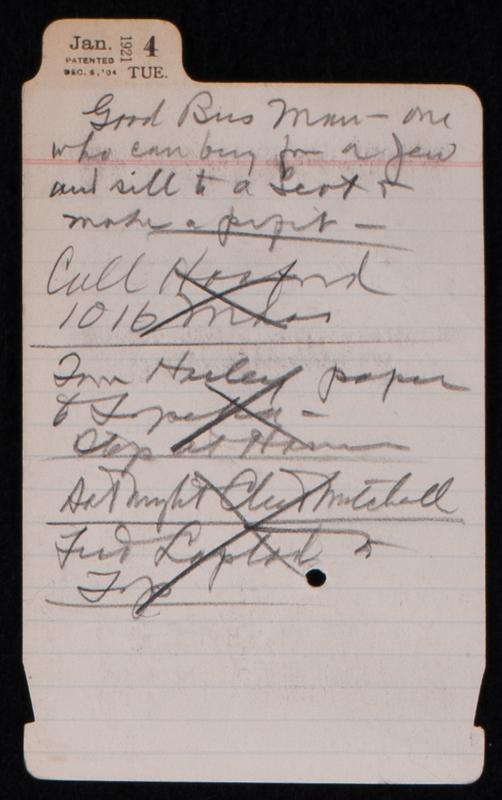 Jan. 1921 4
PATENTED
DEC. 6, '04 TUE.
Good Bus Man - one
who can buy from a Jew
and sell to a Scot &
make a profit -
Call Hosford
1016 Mass
Tom Harley paper
& Topeka -
Stop at Home
Sat night Chest Mitchell
Fred to
Top